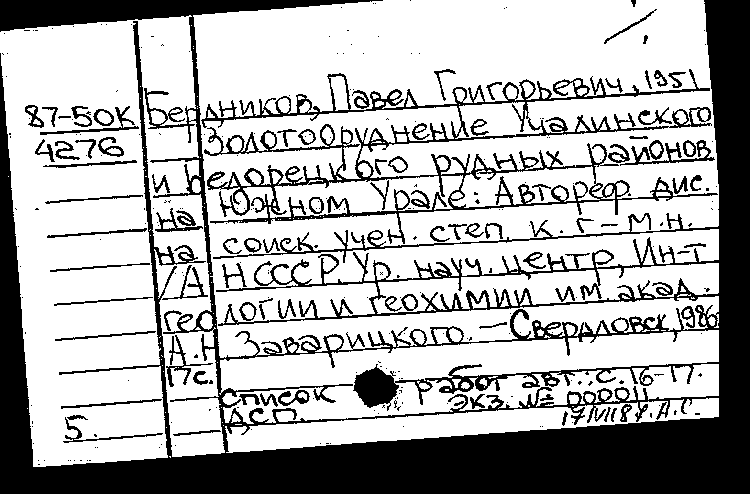 87-50К Бердников, Павел Григорьевич, 1951
4276 Золотооруднение Учалинского
и Белорецкого рудных районов
на Южном Урале: Автореф. дис.
на соиск. учен. степ. к. г-м.н.
/АНСССР. Ур. науч. центр, Ин-т
геологии и геохимии им. акад.
А.Н. Заварицкого. - Свердловск, 1986
17с.
Список работ авт.: с. 16-17.
ДСП. Экз. № 000011
5.